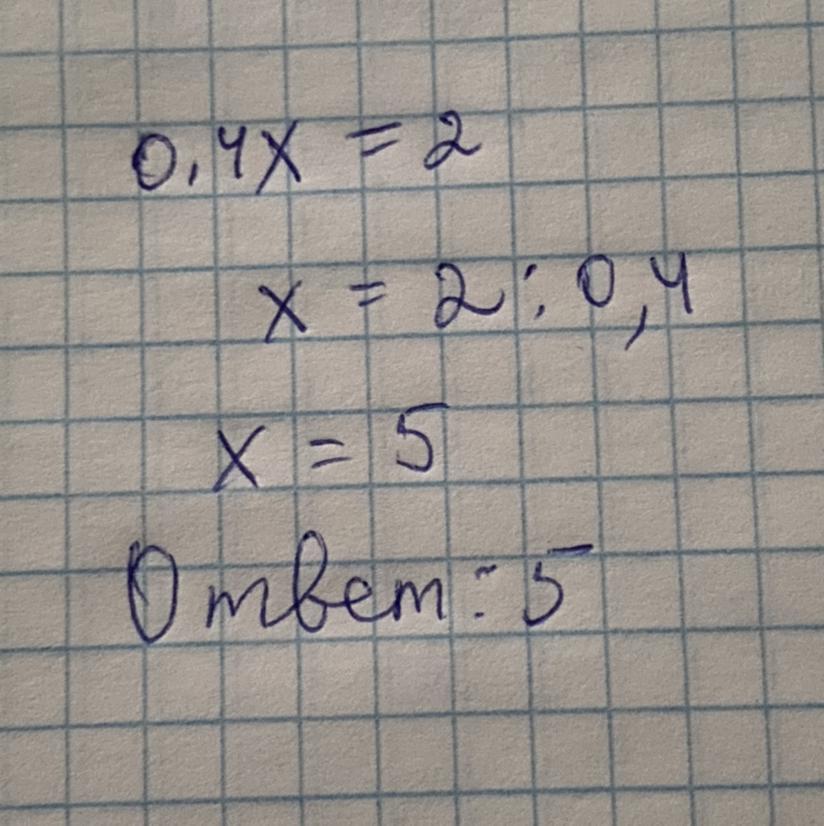 0,4x = 2
x = 2 : 0,4
x = 5
Ответ: 5